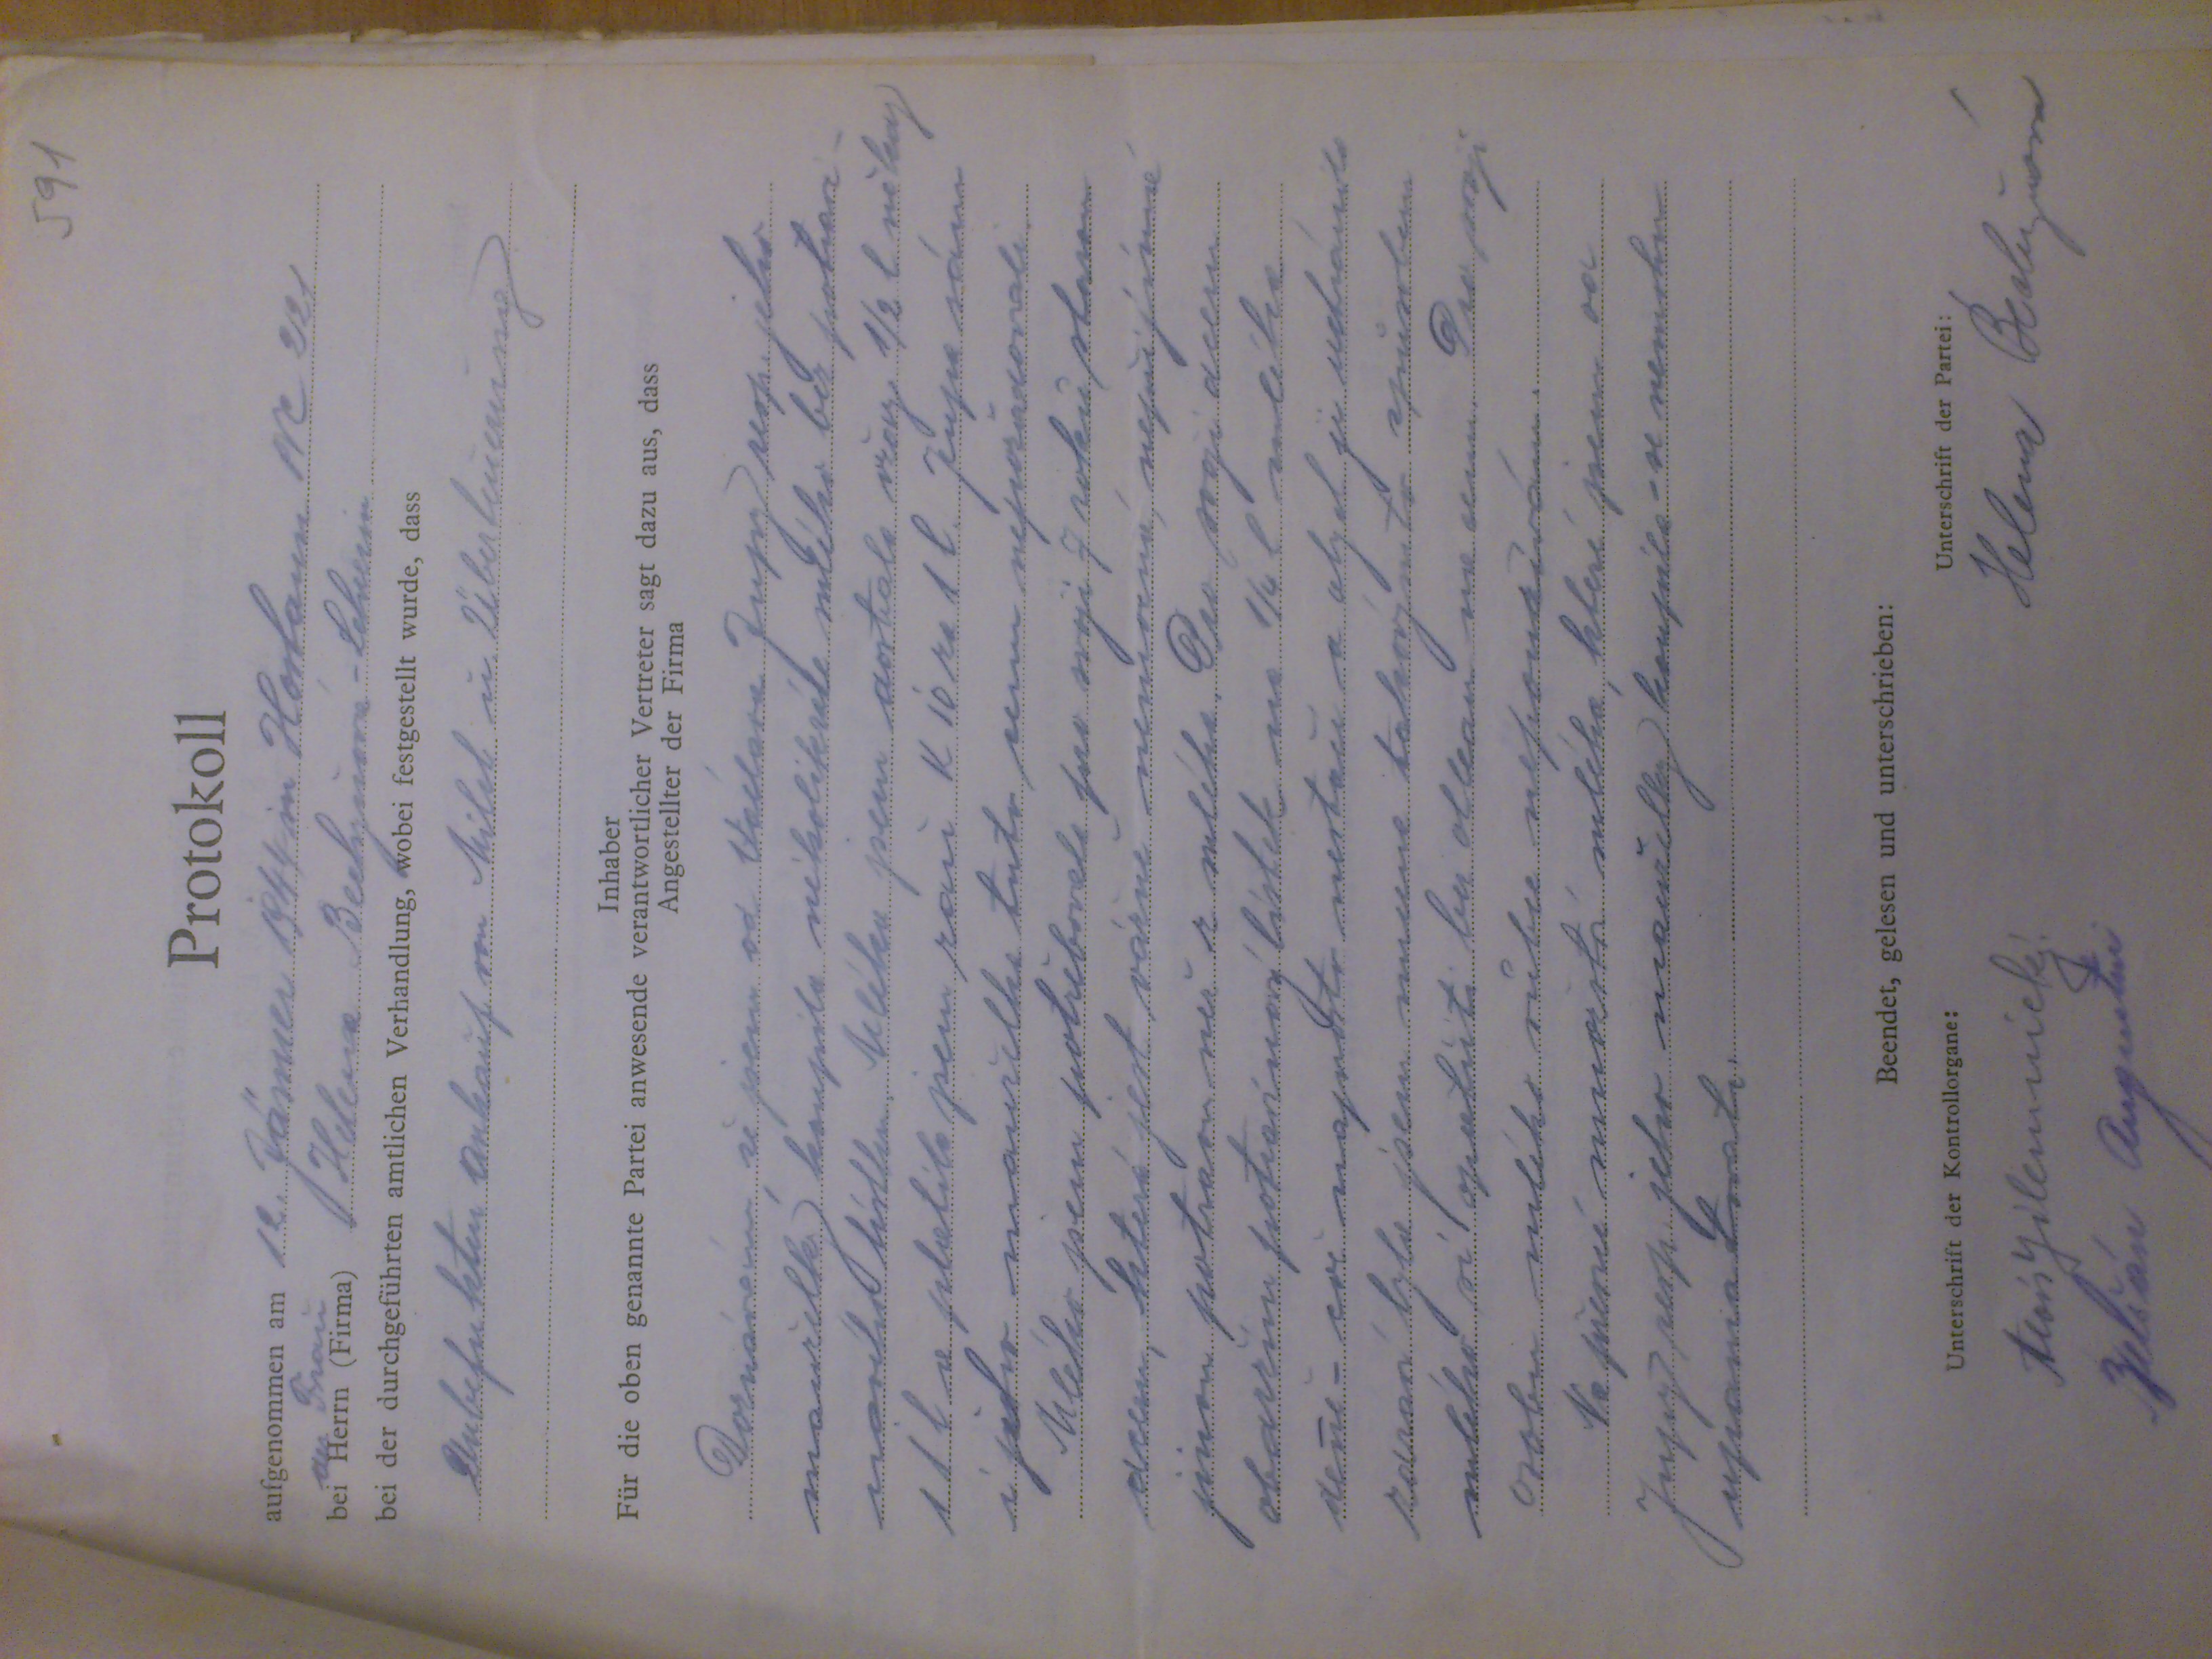 591
Protokoll
aufgenommen am 12. Jänner 1944 in Hostaun Nc 221
der Frau
bei Herrn (Firma) Helena Bechyňová - Lehrerin
bei der durchgeführten amtlichen Verhandlung, wobei festgestellt wurde, dass
Unbefukten Ankauf von Milch u. Überteuerung
Inhaber
Für die oben genannte Partei anwesende verantwortlicher Vertreter sagt dazu aus, dass
Angestellter der Firma
Doznávám, že jsem od Václava Jupy resp. jeho
manželky koupila několikráte mléko bez potravi-
nového lístku. Mléka jsem dostala vždy 1/2 l někdy
i 1 l a platila jsem zaň K 10 za 1 l. Jupa sám
i jeho manželka tuto cenu nepožadovali.
Mléko jsem potřebovala pro svoji 7 roků starou
dceru, která jest vážně nemocná, nepřijímá
jinou potravu než z mléka. Pro svoji dceru
obdržím potravinový lístek na 1/4 l mléka
denně - což naprosto nestačí a abych ji uchránila
zdraví byla jsem nucena takovýmto způsobem
mléko si opatřiti bez ohledu na cenu. Pro svoji
osobu mléka vůbec nepoužívám.
Na přesné množství mléka, které jsem od
Jupy resp. jeho manželky koupila - se nemohu
upamatovati.
Beendet, gelesen und unterschrieben:
Unterschrift der Kontrollorgane:
Unterschrift der Partei:
Alois Jilemnický
Helena Bechyňová
Augustin